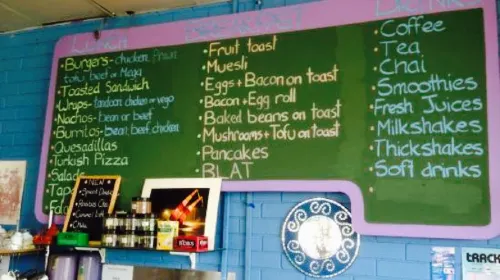 LUNCH
DRINKS
• Burgers - chicken, prawn
tofu, beef or Maga
• Toasted Sandwich
• Wraps - tandoori chicken or vego
• Nachos - bean or beef
• Burritos - bean, beef, chicken
• Quesadillas
• Turkish Pizza
• Salads
• Fruit toast
• Muesli
• Eggs + Bacon on toast
• Bacon + Egg roll
• Baked beans on toast
• Mushrooms + Tofu on toast
• Pancakes
• BLAT
• Coffee
• Tea
• Chai
• Smoothies
• Fresh Juices
• Milkshakes
• Thickshakes
• Soft drinks
NEW
Chai